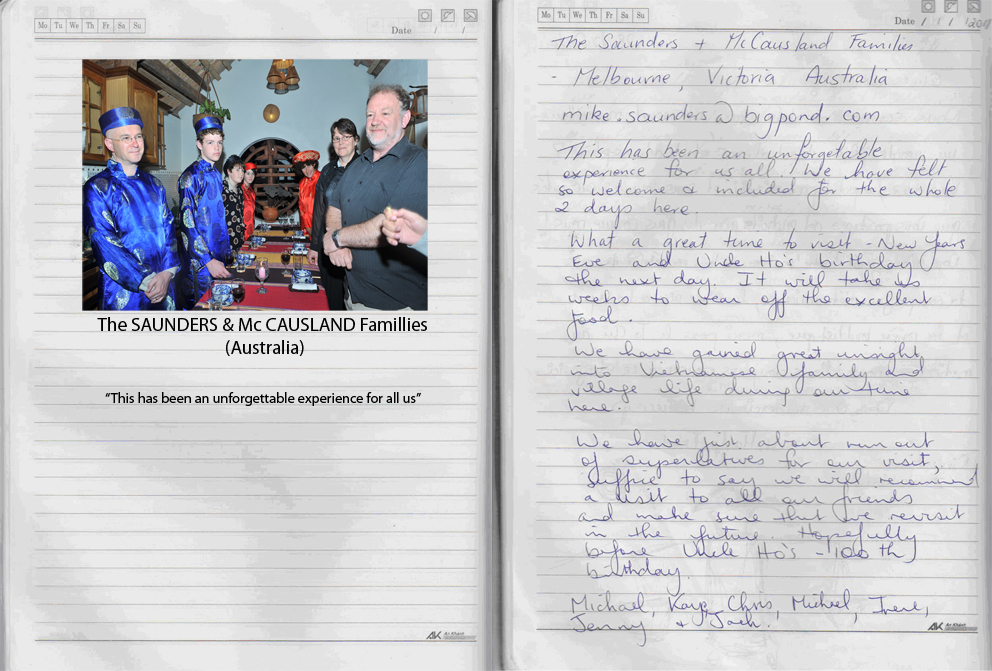 Mo Tu We Th Fr Sa Su
Date / /
The SAUNDERS & Mc CAUSLAND Famillies
(Australia)
“This has been an unforgettable experience for all us”
AK An Khánh
Mo Tu We Th Fr Sa Su
Date / / 2011
The Saunders + McCausland Families
- Melbourne, Victoria Australia
mike.saunders@bigpond.com
This has been an unforgetable
experience for us all. We have felt
so welcome & included for the whole
2 days here.
What a great time to visit - New Years
Eve and Uncle Ho's birthday
the next day. It will take us
weeks to wear off the excellent
food.
We have gained great insight
into Vietnamese family and
village life during our time
here.
We have just about run out
of superlatives for our visit,
suffice to say we will recommend
a visit to all our friends
and make sure that we revisit
in the future. Hopefully
before Uncle Ho's - 100th
birthday.
Michael, Kaye, Chris, Michael, Irene,
Jenny + Jack.
AK An Khánh